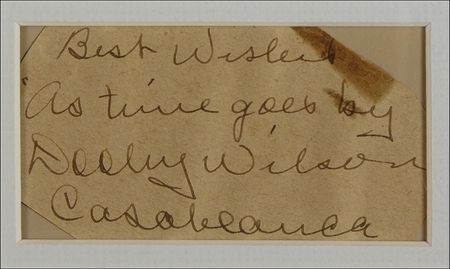 Best Wishes
"As time goes by
Dooley Wilson
Casablanca